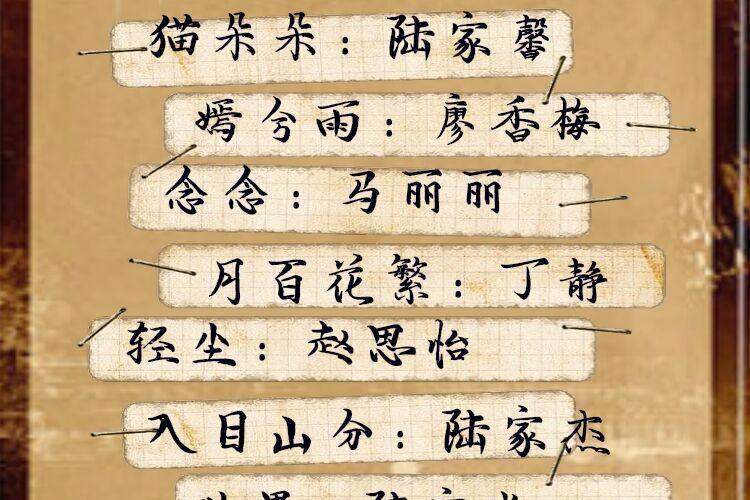 猫朵朵：陆家馨
嫣兮雨：廖香梅
念念：马丽丽
月百花繁：丁静
轻尘：赵思怡
入目山分：陆家杰